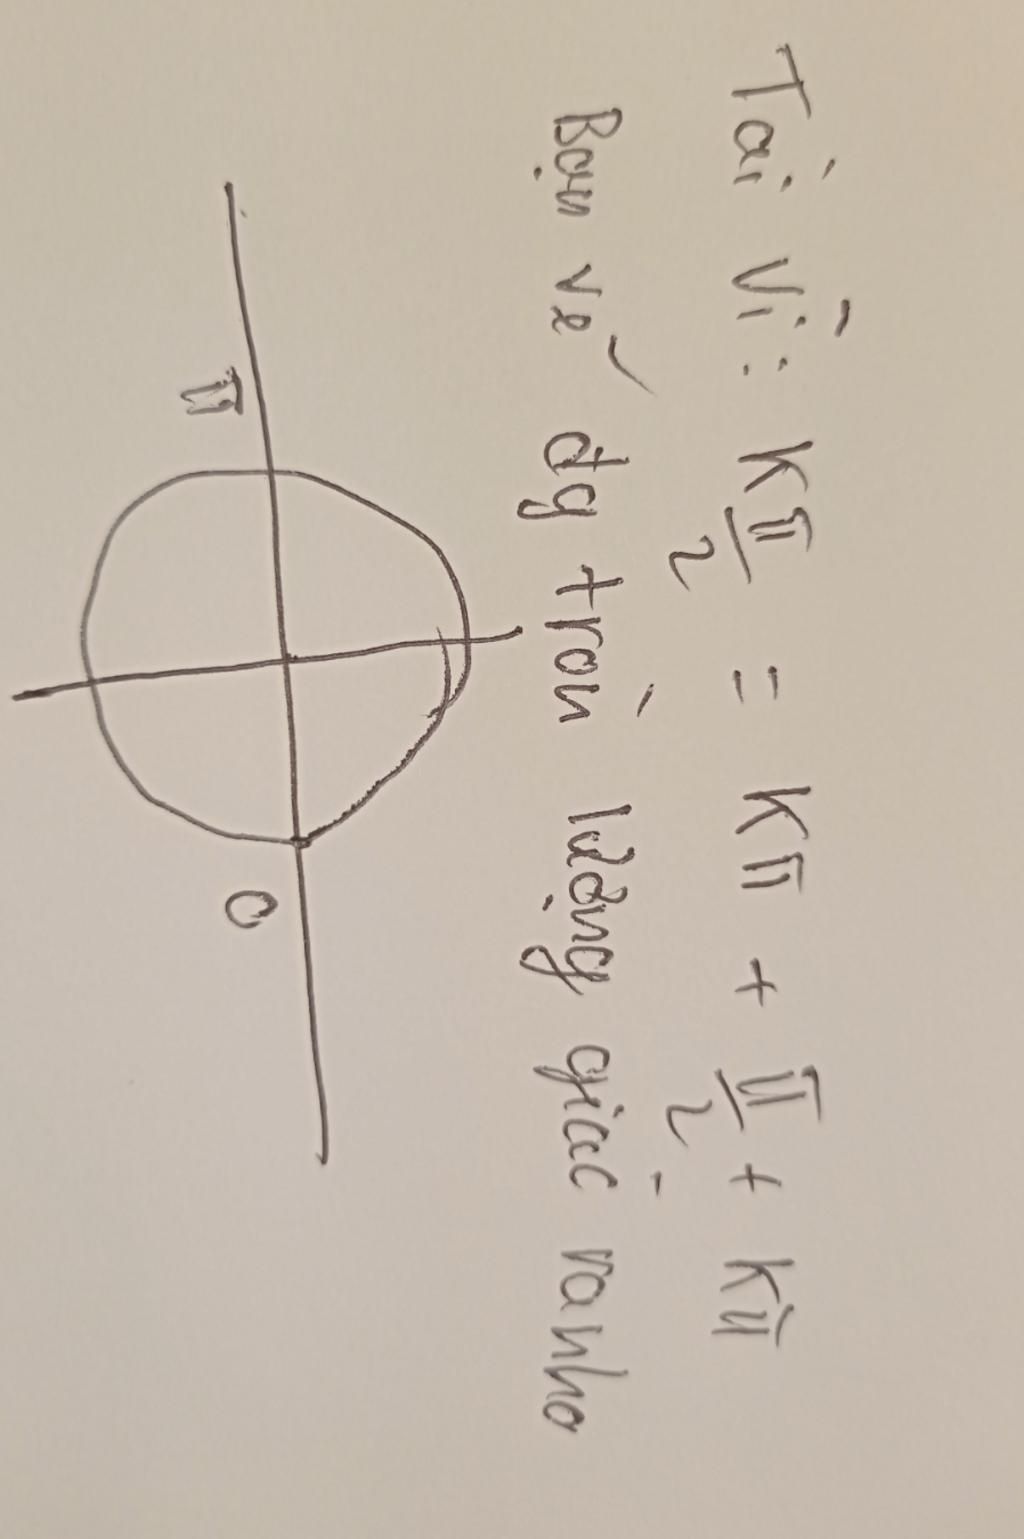 Tại Vì: Kπ/2 = Kπ + π/2 + Kπ
Bạn vẽ đg tròn lượng giác ra nho
π
0